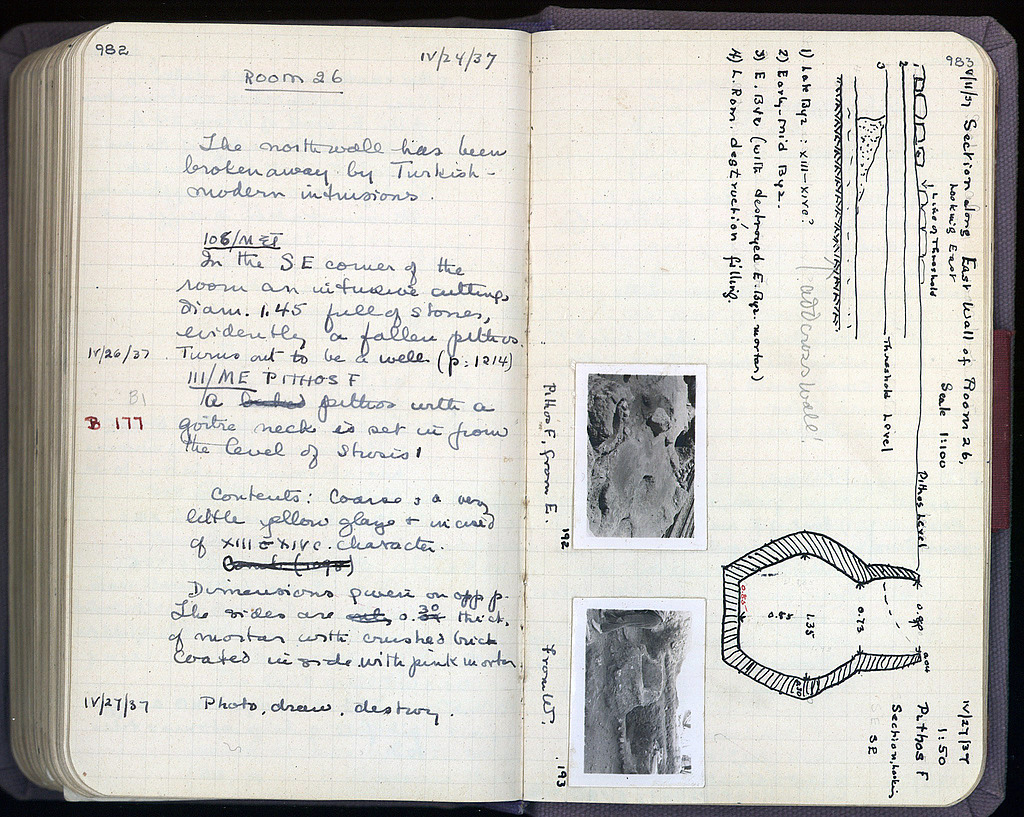 982
IV/24/37
Room 26
The north wall has been
broken away by Turkish-
modern intrusions.
In the SE corner of the
room an intrusive cutting,
diam. 1.45 full of stones,
evidently a fallen pithos.
IV/26/37 Turns out to be a well (p. 1214)
111/ME PITHOS F
B1
A pithos with a
B 177 goitre neck is set in from
the level of
Contents: Coarse & a very
little yellow glaze + incised
of XIII - XIV c. character.
Dimensions given on opp p.
The sides are 0.30 thick,
of mortar with crushed brick
coated inside with pink mortar.
IV/27/37 Photo, draw, destroy.
983
Section along East Wall of Room 26,
Looking East
Scale 1:100
Line of Threshold
1
2
3
Threshold Level
Pithos Level
1) Late Byz : XIII-XIVc?
2) Early-Mid Byz.
3) E. Byz (with destroyed E. Byz mortar)
4) L. Rom. destruction filling.
add cross wall!
Pithos F, from E.
192
from W.
193
IV/27/37
1:50
Pithos F
Section, looking
SE
0.73
1.35